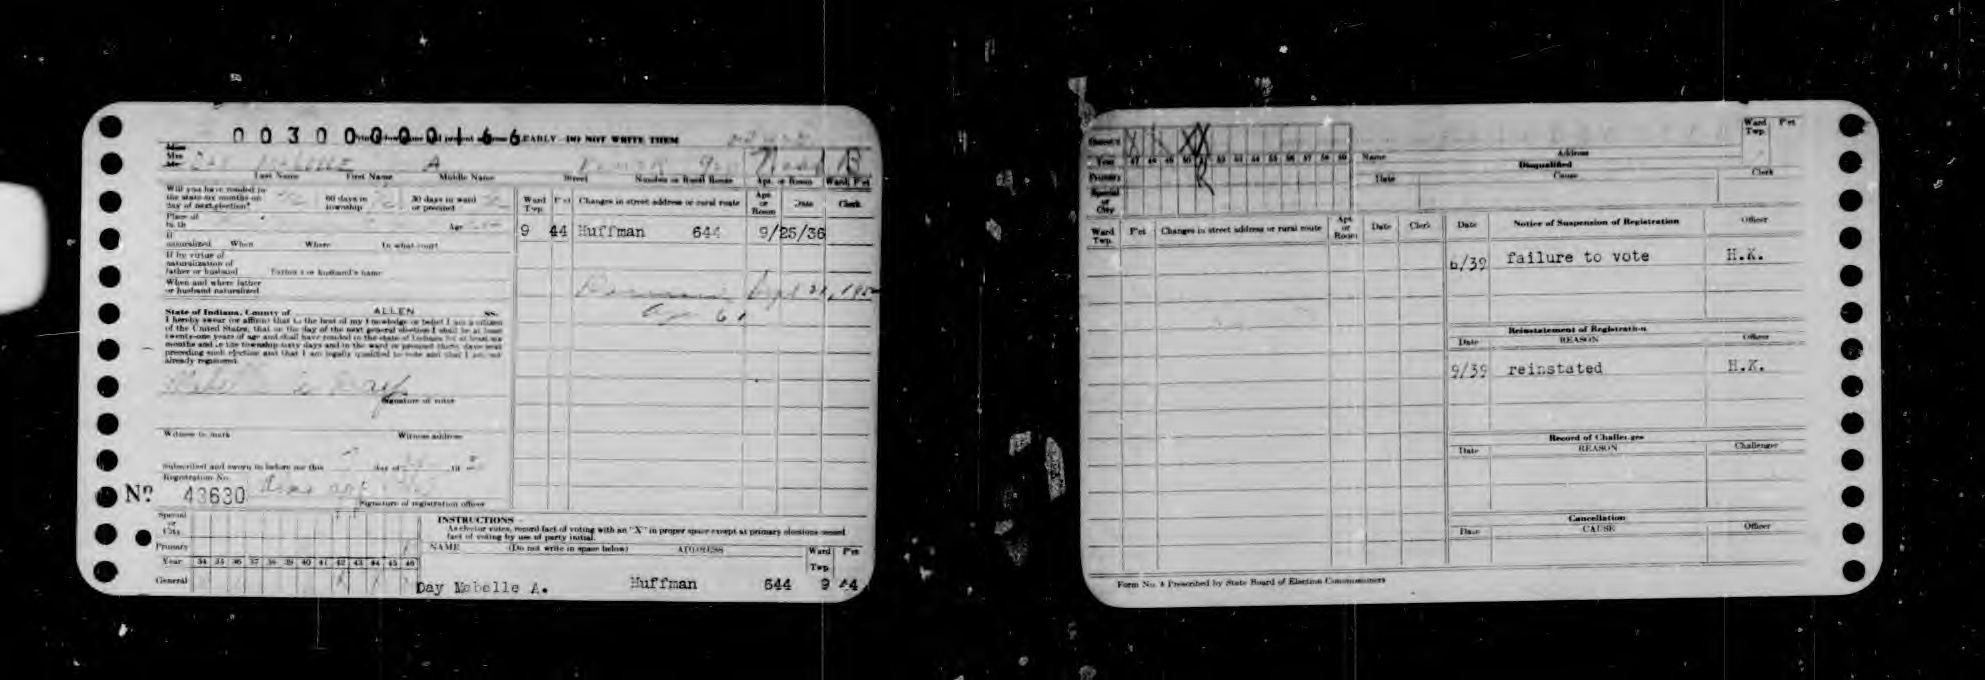 003000000166 EARLY DO NOT WRITE THEM
Miss
Mrs
Mr
A
Last Name First Name Middle Name Street Number or Rural Route Apt. or Room Ward P'ct
Will you have resided in the state six months on day of next election? 60 days in township 30 days in ward or precinct
Place of birth Age
If naturalized When Where In what court
If by virtue of naturalization of father or husband Father's or husband's name
When and where father or husband naturalized
State of Indiana, County of ALLEN SS.
I hereby swear (or affirm) that to the best of my knowledge or belief I am a citizen
of the United States, that on the day of the next general election I shall be at least
twenty-one years of age and shall have resided in the state of Indiana for at least six
months and in the township sixty days and in the ward or precinct thirty days next
preceding such election and that I am legally qualified to vote and that I am not
already registered.
Signature of voter
Witness to mark Witness address
Subscribed and sworn to before me this day of 19
Registration No.
Nº 43630
Signature of registration officer
Ward Twp. P'ct Changes in street address or rural route Apt. or Room Date Clerk
9 44 Huffman 644 9/25/36
Special or City
Primary
Year 34 35 36 37 38 39 40 41 42 43 44 45 46
General
INSTRUCTIONS
As elector votes, record fact of voting with an "X" in proper space except at primary elections record
fact of voting by use of party initial.
NAME (Do not write in space below) ADDRESS Ward Twp. P'ct
Day Mabelle A. Huffman 644 9 44
General X X
Year 47 48 49 50 51 52 53 54 55 56 57 58 59
Primary R
Special or City
Name Address Ward Twp. P'ct
Disqualified
Date Cause Clerk
Ward Twp. P'ct Changes in street address or rural route Apt. or Room Date Clerk
Date Notice of Suspension of Registration Officer
6/39 failure to vote H.K.
Reinstatement of Registration
Date REASON Officer
9/39 reinstated H.K.
Record of Challenges
Date REASON Challenger
Cancellation
Date CAUSE Officer
Form No. 4 Prescribed by State Board of Election Commissioners